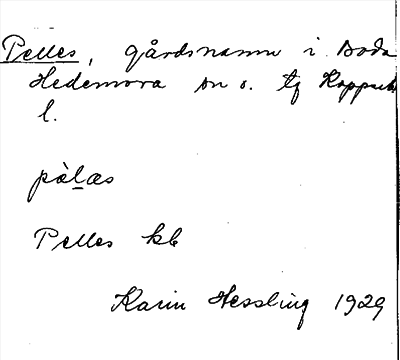 Pelles, gårdsnamn i Boda
Hedemora sn o. tg Kopparb
l.
pàlæs
Pelles kb
Karin Hessling 1929